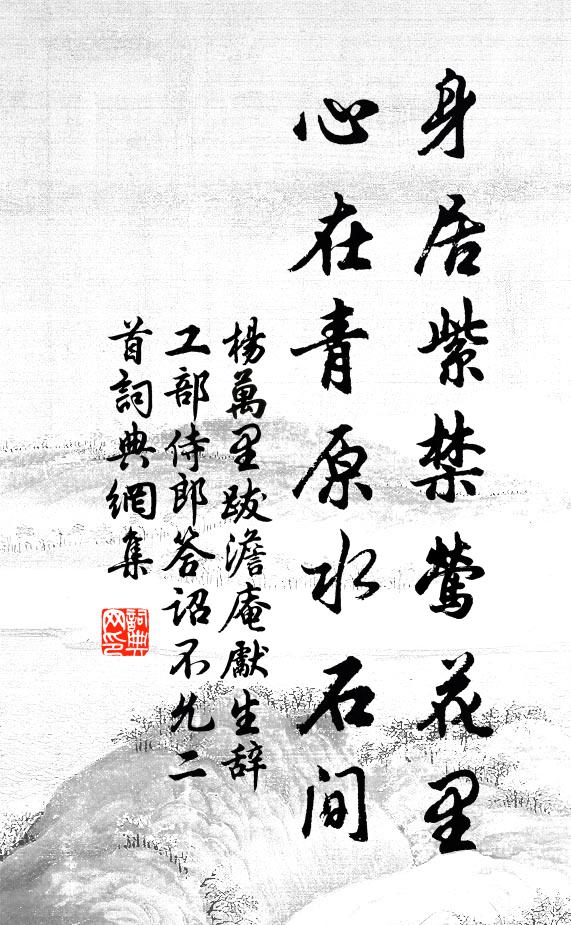 身居紫禁莺花里
心在青原水石间
楊萬里跋澹庵勵生辞
工部侍郎答詔不允二
首詞典網集
詞典網印